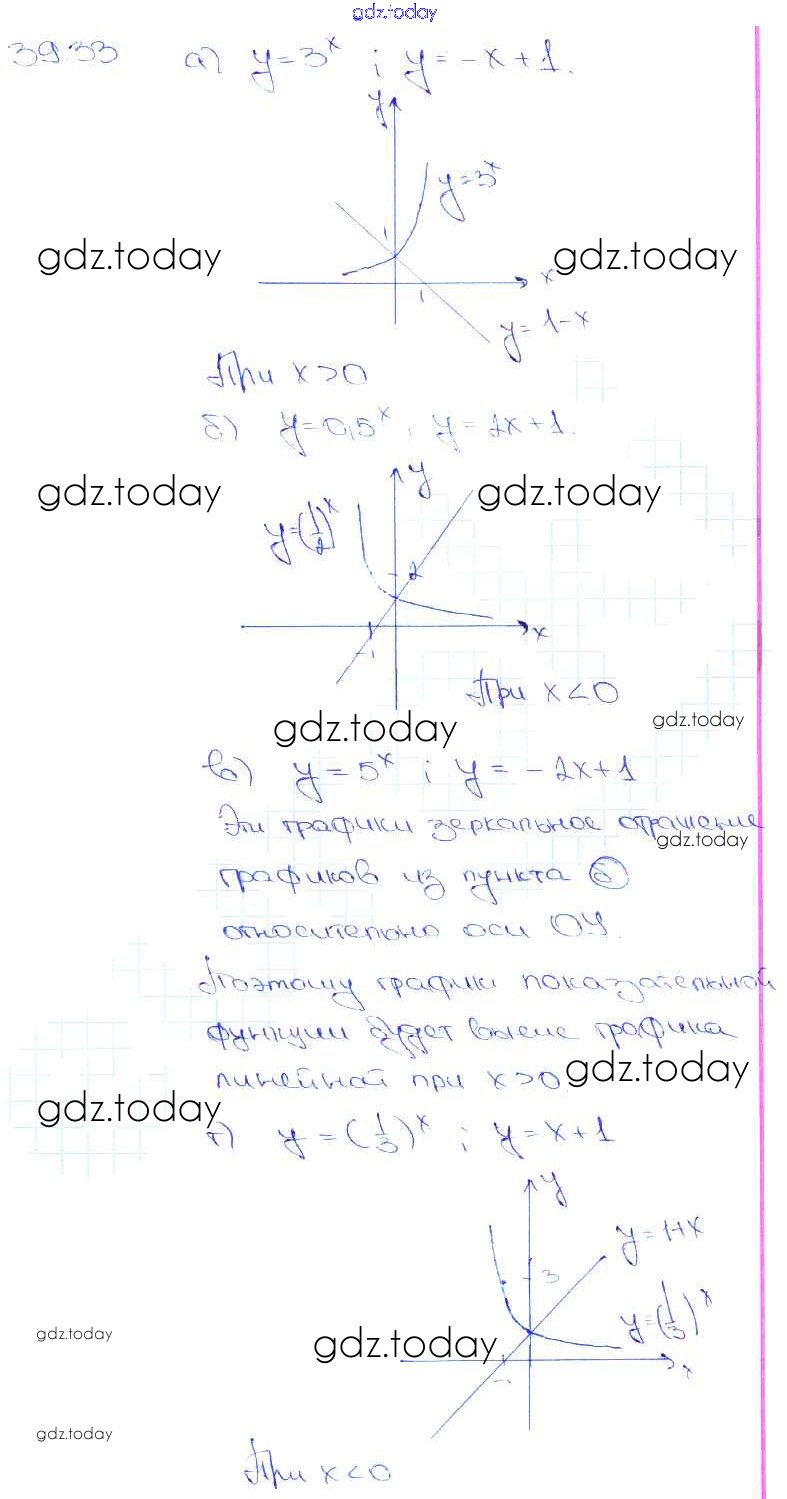 gdz.today
39.33 а) y = 3^x ; y = -x + 1.
y
y = 3^x
1
gdz.today gdz.today
x
1
y = 1 - x
При x > 0
б) y = 0,5^x ; y = 2x + 1.
y
gdz.today gdz.today
y = (1/2)^x
2
x
-1
При x < 0
gdz.today gdz.today
в) y = 5^x ; y = -2x + 1
Эти графики зеркальное отражение
gdz.today
графиков из пункта б
относительно оси OY.
Поэтому график показательной
функции будет выше графика
линейной при x > 0
gdz.today
gdz.today
г) y = (1/3)^x ; y = x + 1
y
y = 1 + x
3
y = (1/3)^x
gdz.today gdz.today
x
-1
gdz.today
При x < 0